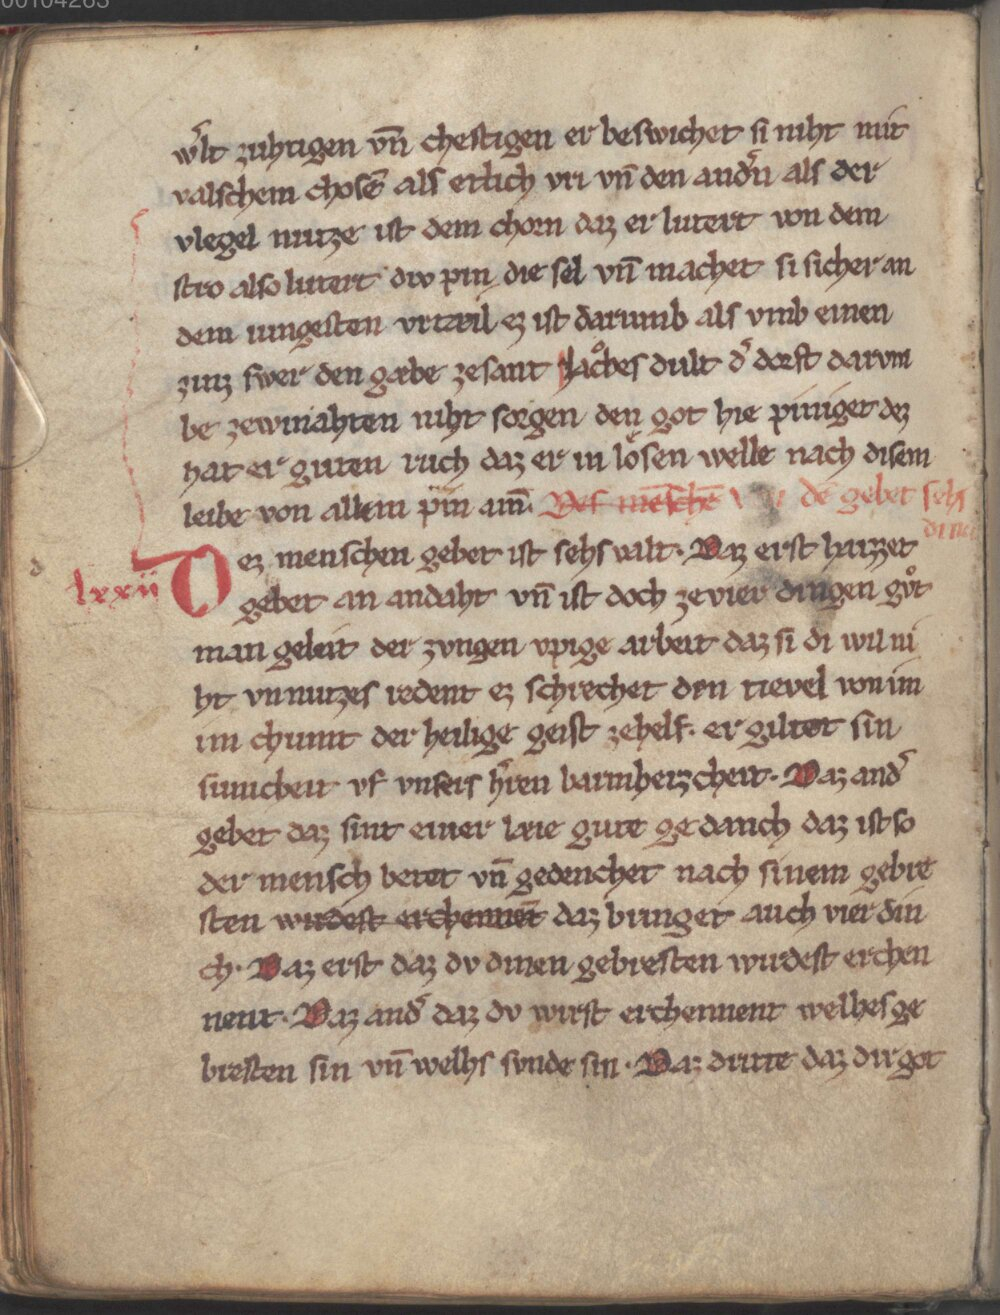 00104263
w̓lt zuhtigen vn̄ chestigen er beswichet si niht mit
valschem chosē als etlich vri vn̄ den and̓n als der
vlegel nutze ist dem chorn daz er lutert von dem
stro also lutert div pin die sel vn̄ machet si sicher an
dem iungesten vrteil ez ist darumb als vmb einen
zinz swer den gabe ze sant Jacobes dult d̓ dorft darvm
be zewinahten niht sorgen den got hie piniget dez
hat er guten ruch daz er in losen welle nach disem
leibe von allem pin am̄. Des mēschē de gebet sehs
dinc
lxxii Dez menschen gebet ist sehs valt. Daz erst haizzet
gebet an andaht vn̄ ist doch ze vier dingen gůt
man geleit der zvngen vpige arbeit daz si di wil ni
ht vnnutzes redent ez schrechet den tievel von im
im chumt der heilige geist zehelf. er giltet sin
sumcheit vf vnsers h̓ren barmherzcheit. Daz and̓
gebet daz sint einer laie gute gedanch daz ist so
der mensch betet vn̄ gedenchet nach sinem gebre
sten wirdest erchennēt daz bringet auch vier din
ch. Daz erst daz dv dinen gebresten wirdest erchen
nent. Daz and̓ daz dv wirst erchennent welhes ge
bresten sin vn̄ welhs svnde sin. Daz dritte daz dir got